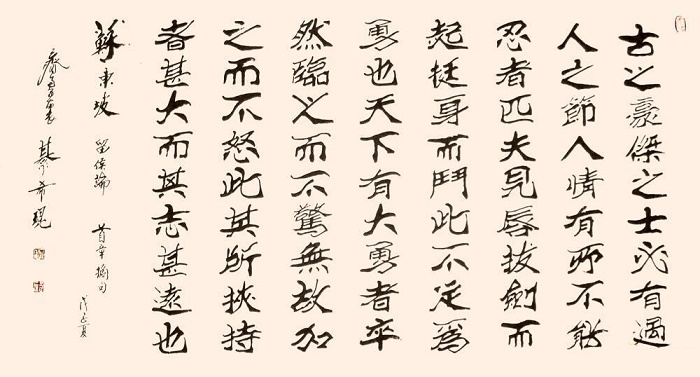 古之豪傑之士必有過
人之節人情有所不能
忍者匹夫見辱拔劍而
起挺身而鬥此不足為
勇也天下有大勇者卒
然臨之而不驚無故加
之而不怒此其所挾持
者甚大而其志甚遠也
蘇東坡 留侯論 首章摘句